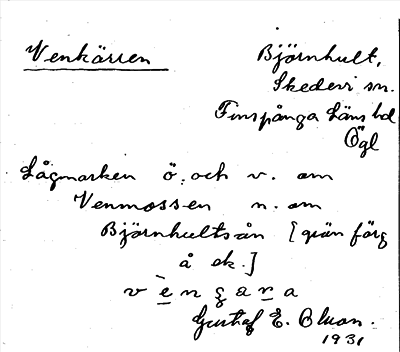 Venkärren
Björnhult,
Skedevi sn.
Finspånga Läns hd
Ögl
Lågmarken ö. och v. om
Venmossen n. om
Björnhultsån [grän färg
å ek.]
Gustaf E. Bluon.
1931